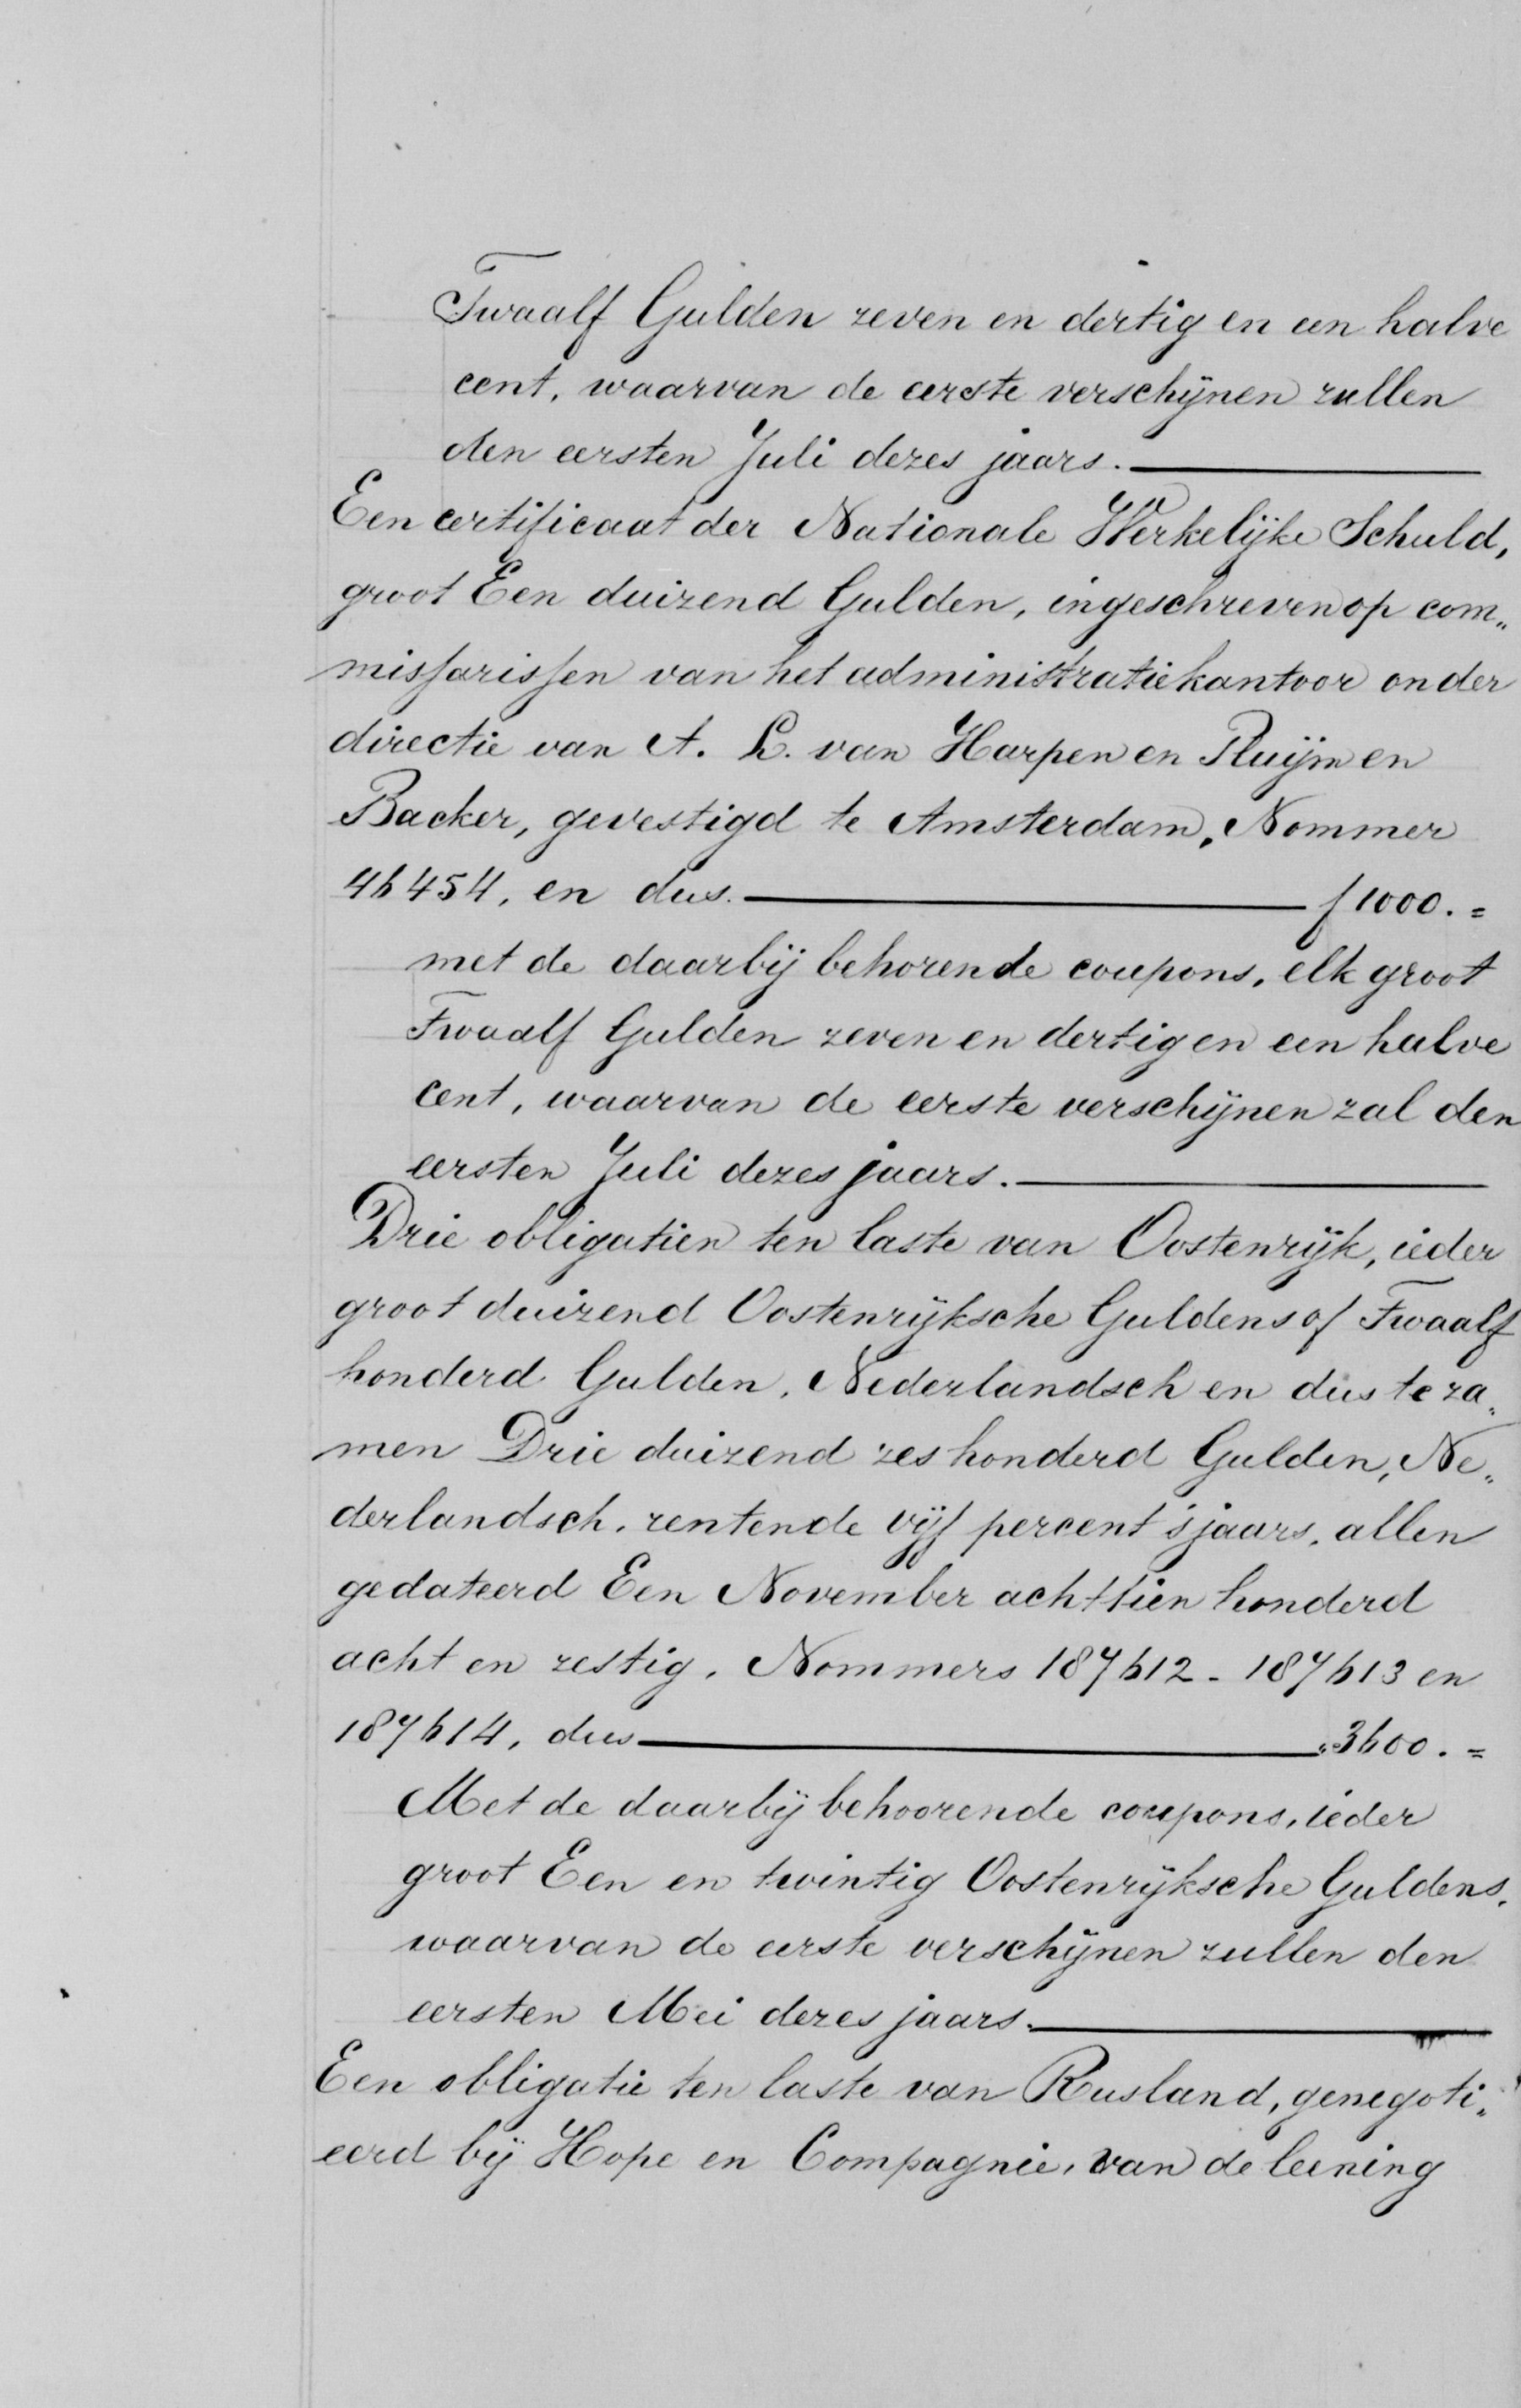 Twaalf Gulden zeven en dertig en een halve
cent, waarvan de eerste verschijnen zullen
den eersten Juli dezes jaars.
Een certificaat der Nationale Werkelijke Schuld,
groot Een duizend Gulden, ingeschreven op com„
missarissen van het administratiekantoor onder
directie van A. L. van Harpen en Pluijm en
Backer, gevestigd te Amsterdam, Nommer
46454, en dus. f 1000.=
met de daarbij behorende coupons, elk groot
Twaalf Gulden zeven en dertig en een halve
cent, waarvan de eerste verschijnen zal den
eersten Juli dezes jaars.
Drie obligatien ten laste van Oostenrijk, ieder
groot duizend Oostenrijksche Guldens of Twaalf
honderd Gulden, Nederlandsch en dus te za„
men Drie duizend zes honderd Gulden, Ne„
derlandsch, rentende vijf percent 's jaars, allen
gedateerd Een November achttien honderd
acht en zestig, Nommers 187612 - 187613 en
187614, dus „3600.=
Met de daarbij behoorende coupons, ieder
groot Een en twintig Oostenrijksche Guldens,
waarvan de eerste verschijnen zullen den
eersten Mei dezes jaars.
Een obligatie ten laste van Rusland, genegoti„
eerd bij Hope en Compagnie, van de leening